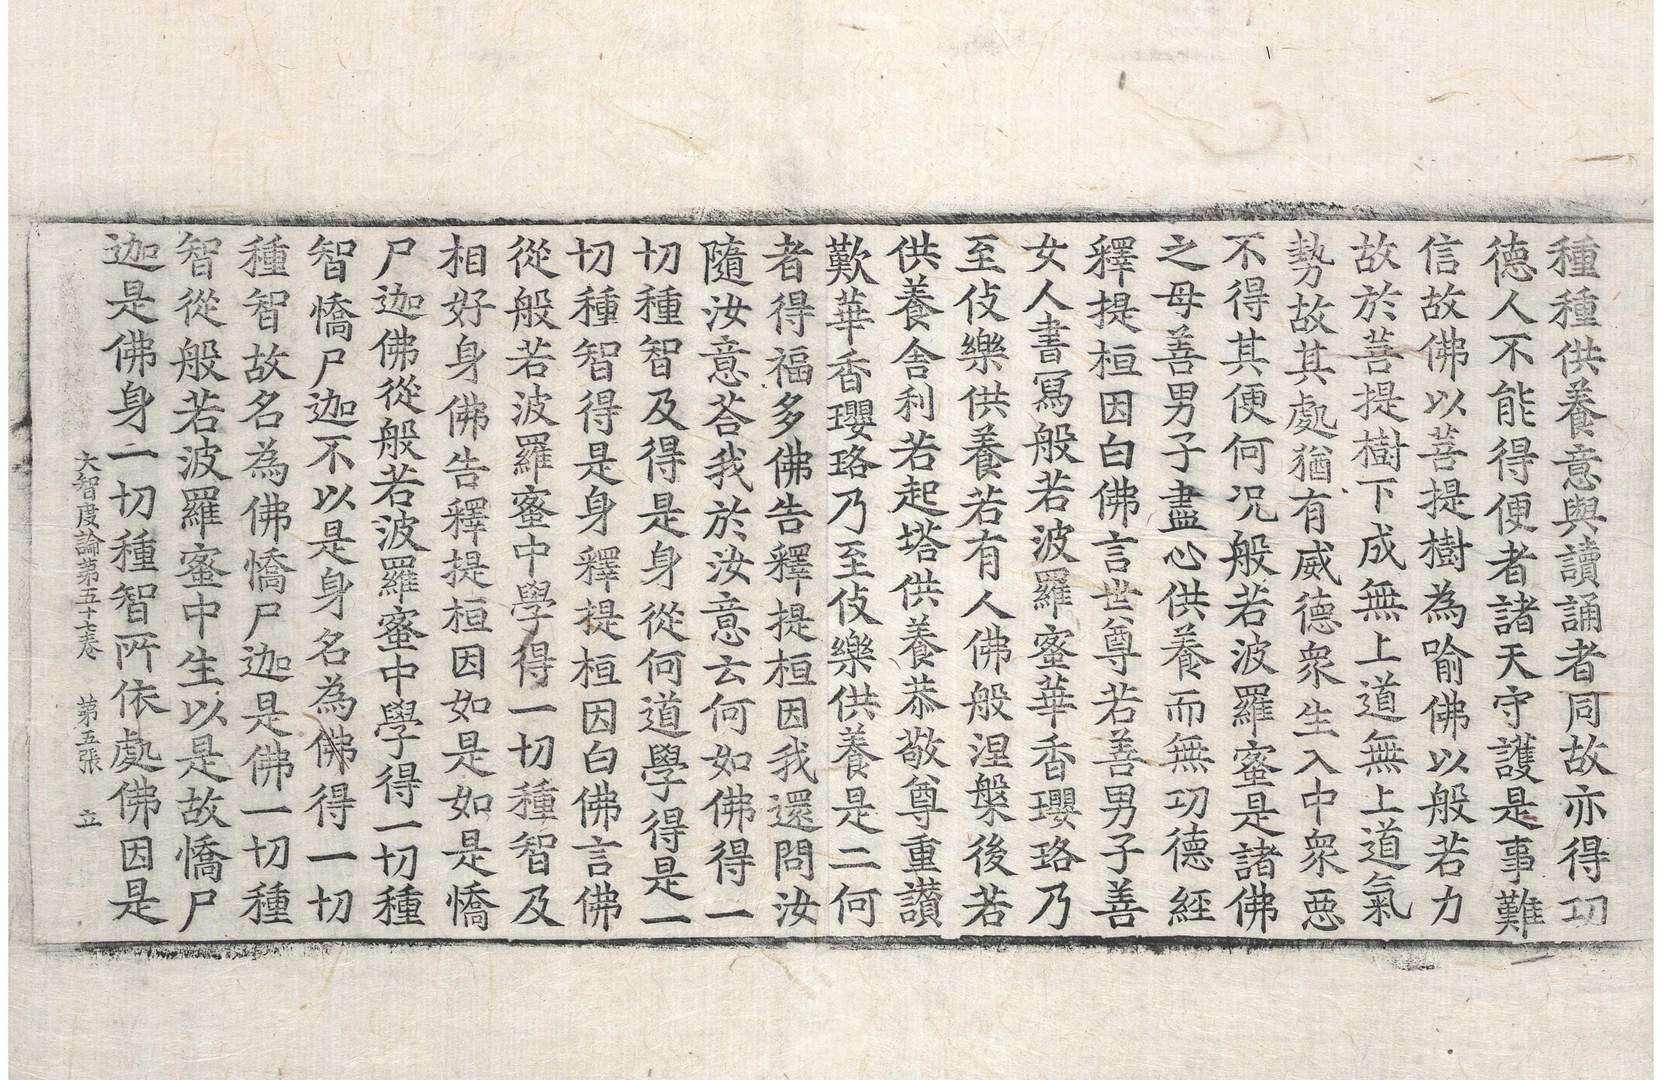 種種供養意與讀誦者同故亦得功
德人不能得便者諸天守護是事難
信故佛以菩提樹為喻佛以般若力
故於菩提樹下成無上道無上道氣
勢故其處猶有威德衆生入中衆惡
不得其便何况般若波羅蜜是諸佛
之母善男子盡心供養而無功德經
釋提桓因白佛言世尊若善男子善
女人書寫般若波羅蜜華香瓔珞乃
至伎樂供養若有人佛般涅槃後若
供養舍利若起塔供養恭敬尊重讃
歎華香瓔珞乃至伎樂供養是二何
者得福多佛告釋提桓因我還問汝
隨汝意荅我於汝意云何如佛得一
切種智及得是身從何道學得是一
切種智得是身釋提桓因白佛言佛
從般若波羅蜜中學得一切種智及
相好身佛告釋提桓因如是如是憍
尸迦佛從般若波羅蜜中學得一切種
智憍尸迦不以是身名為佛得一切
種智故名為佛憍尸迦是佛一切種
智從般若波羅蜜中生以是故憍尸
迦是佛身一切種智所依處佛因是
大智度論第五十七卷 第五張 立